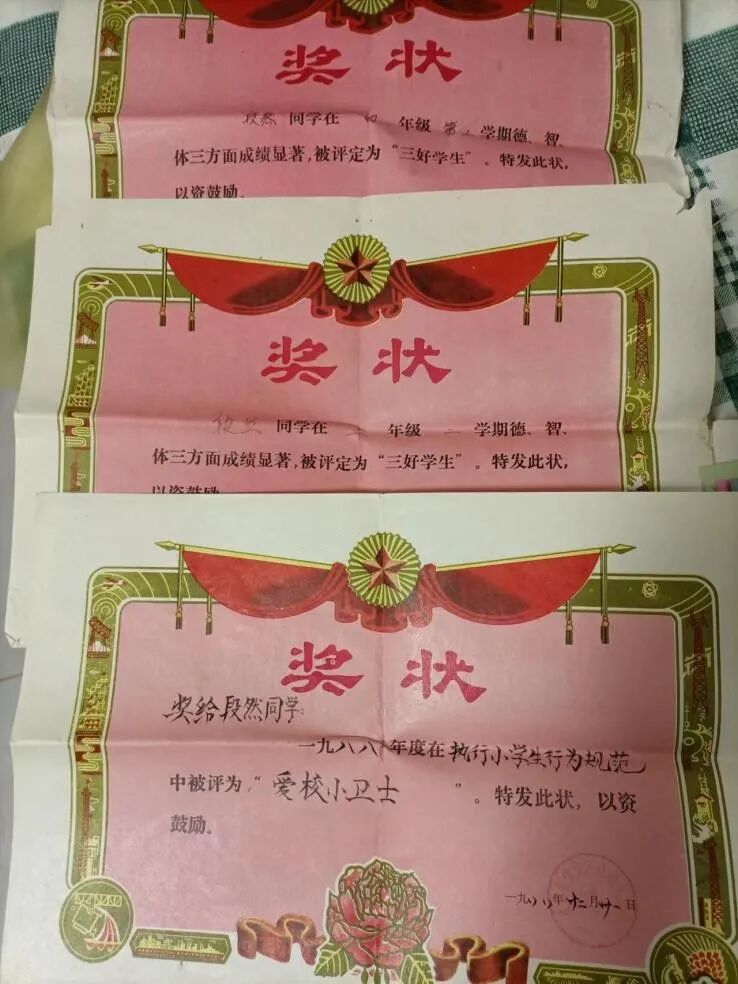 奖状
段然同学在四年级第二学期德、智、
体三方面成绩显著,被评定为“三好学生”。特发此状,
以资鼓励。
奖状
段然同学在 年级二学期德、智、
体三方面成绩显著,被评定为“三好学生”。特发此状,
以资鼓励
奖状
奖给段然同学:
一九八八年度在执行小学生行为规范
中被评为,“爱校小卫士”。特发此状,以资
鼓励。
一九八八年十二月廿一日